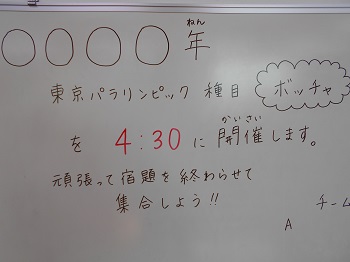 〇〇〇〇年
ねん
東京パラリンピック 種目 ボッチャ
かいさい
を 4:30に開催します。
頑張って宿題を終わらせて
集合しよう!!
チーム
A